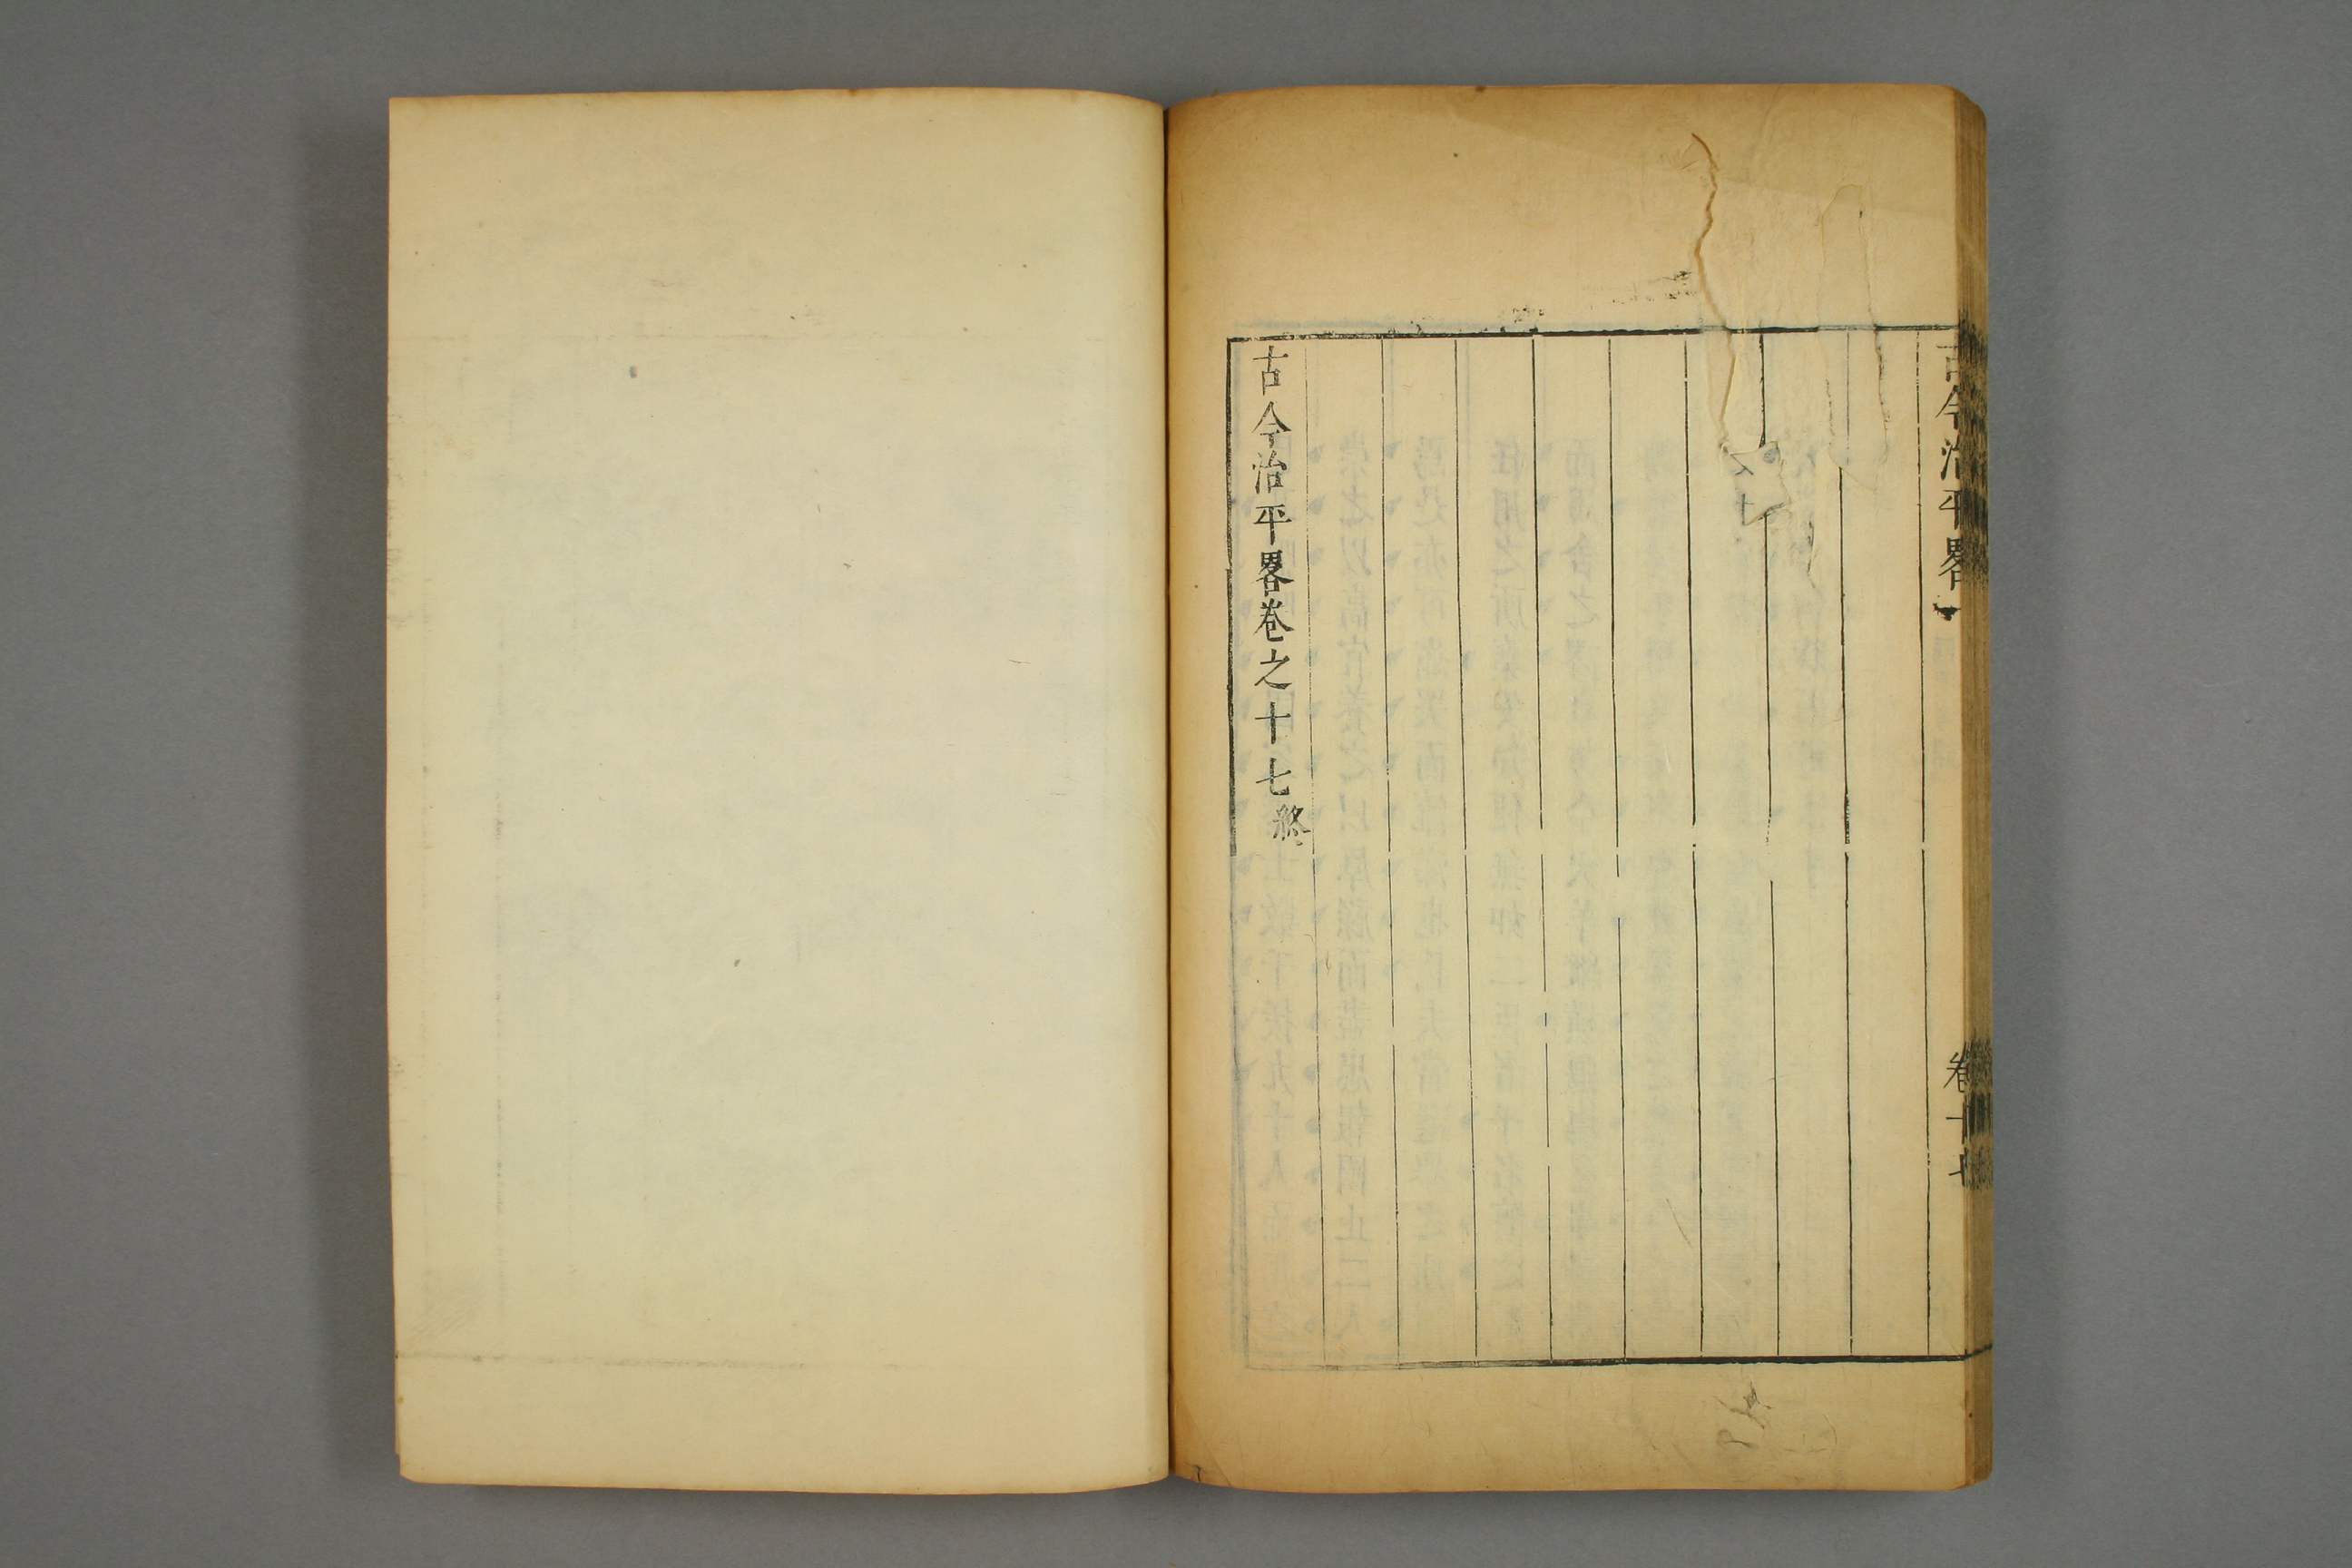 古今治平畧
卷十七
古今治平畧卷之十七終